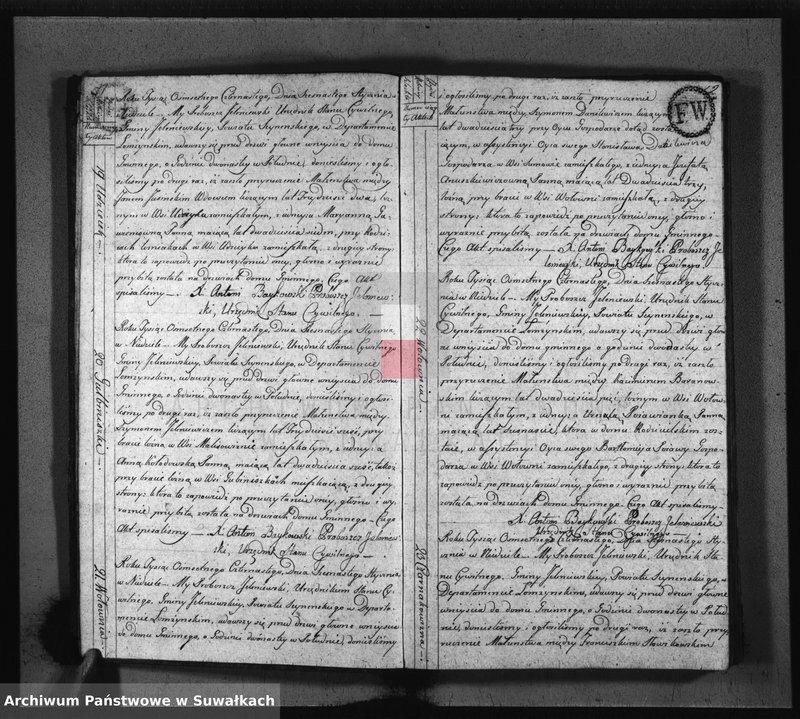 Roku Tysiąc Osmsetnego Czternastego, Dnia Szesnastego Stycznia
w Niedziele - My Proboszcz Jeleniewski Urzędnik Stanu Cywilnego,
Gminy Jeleniewskiey, Powiatu Seynenskiego, w Departamencie
Łomżynskim, udawszy się przed drzwi główne wnyścia do domu
Gminnego, o Godzinie dwonastey w Południe, donieśliśmy i ogło-
siliśmy po drugi raz, iż zaszło przyrzeczenie Małżenstwa między
Janem Jasinskim Wdowcem liczącym lat Trzydzieści dwa,
w Wsi Udzieyku zamieszkałym, z iedney a Maryanną
Panną maiącą lat dwadzieścia siedm, przy
w Wsi Udzieyku zamieszkałą, z drugiey strony:
która to zapowiedz po przeczytaniu oney, głośno i wyraźnie
przybitą została na drzwiach domu Gminnego. - Czego Akt
spisaliśmy - X. Antoni Bzykowski Proboszcz Jeleniew-
ski, Urzędnik Stanu Cywilnego. -
Roku Tysiąc Osmsetnego Czternastego, Dnia Szesnastego Stycznia,
w Niedziele - My Proboszcz Jeleniewski, Urzędnik Stanu Cywilnego
Gminy Jeleniewskiey, Powiatu Seynenskiego, w Departamencie
Łomżynskim, udawszy się przed drzwi główne wnyścia do domu
Gminnego, o Godzinie dwonastey w Południe, donieśliśmy i ogłosi-
liśmy po drugi raz, iż zaszło przyrzeczenie Małżenstwa między
Szymonem liczącym lat Trzydzieści sześć, przy
bracie w Wsi Malesowiznie zamieszkałym, z iedney a
Anną Kołodowską Panną maiącą lat dwadzieścia sześć, także
przy bracie w Wsi mieszkaiącą, z drugiey
strony: która to zapowiedz po przeczytaniu oney, głośno i wy-
raźnie przybitą została na drzwiach domu Gminnego - Czego
Akt spisaliśmy - X. Antoni Bzykowski Proboszcz Jeleniew-
ski, Urzędnik Stanu Cywilnego -
Roku Tysiąc Osmsetnego Czternastego, Dnia Szesnastego Stycznia,
w Niedziele - My Proboszcz Jeleniewski, Urzędnikiem Stanu Cy-
wilnego, Gminy Jeleniewskiey, Powiatu Seynenskiego w Departa-
mencie Łomżynskim, udawszy się przed drzwi główne wnyścia
do domu Gminnego, o Godzinie dwonastey w Południe, donieśliśmy
20
21 Wołownia
i ogłosiliśmy po drugi raz, iż zaszło przyrzeczenie
Małżenstwa między Szymonem Danilewiczem liczącym
lat dwadzieścia trzy przy Oycu Gospodarzu dotąd zosta-
iącym, w assystencyi Oyca swego Stanisława Danilewicza
Gospodarza, w Wsi zamieszkałego, z iedney a Jozefatą
Panną maiącą lat Dwadzieścia trzy,
przy bracie w Wsi Wołowni zamieszkałą, z drugiey
strony: która to zapowiedz po przeczytaniu oney, głośno i
wyraźnie przybitą została na drzwiach domu Gminnego -
Czego Akt spisaliśmy - X. Antoni Bzykowski Proboszcz Je-
leniewski, Urzędnik Stanu Cywilnego -
Roku Tysiąc Osmsetnego Czternastego, Dnia Szesnastego Stycz-
nia w Niedziele - My Proboszcz Jeleniewski, Urzędnik Stanu
Cywilnego, Gminy Jeleniewskiey, Powiatu Seynenskiego, w
Departamencie Łomżynskim, udawszy się przed drzwi głów-
ne wnyścia do domu Gminnego o godzinie dwonastey w
Południe, donieśliśmy i ogłosiliśmy po drugi raz, iż zaszło
przyrzeczenie Małżenstwa między Kazimierzem Baranow-
skim liczącym lat dwadzieścia pięć, w Wsi Wołow-
ni zamieszkałym, z iedney a Panną
maiącą lat Szesnaście, która w domu Rodzicielskim zos-
taie, w assystencyi Oyca swego Bartłomieja Gospo-
darza, w Wsi Wołowni zamieszkałego, z drugiey strony: która to
zapowiedz po przeczytaniu oney, głośno i wyraźnie przybitą
została na drzwiach domu Gminnego - Czego Akt spisaliśmy -
X. Antoni Bzykowski Proboszcz Jeleniewski
Urzędnik Stanu Cywilnego -
Roku Tysiąc Osmsetnego Czternastego, Dnia Szesnastego Stycz-
nia w Niedziele - My Proboszcz Jeleniewski, Urzędnik Sta-
nu Cywilnego, Gminy Jeleniewskiey, Powiatu Seynenskiego, w
Departamencie Łomżynskim, udawszy się przed drzwi główne
wnyścia do domu Gminnego, o Godzinie dwonastey w Połud-
nie, donieśliśmy i ogłosiliśmy po drugi raz, iż zaszło przy-
rzeczenie Małżenstwa między Franciszkiem Sławikowskim
22 Wołownia
23
FW
Archiwum Państwowe w Suwałkach